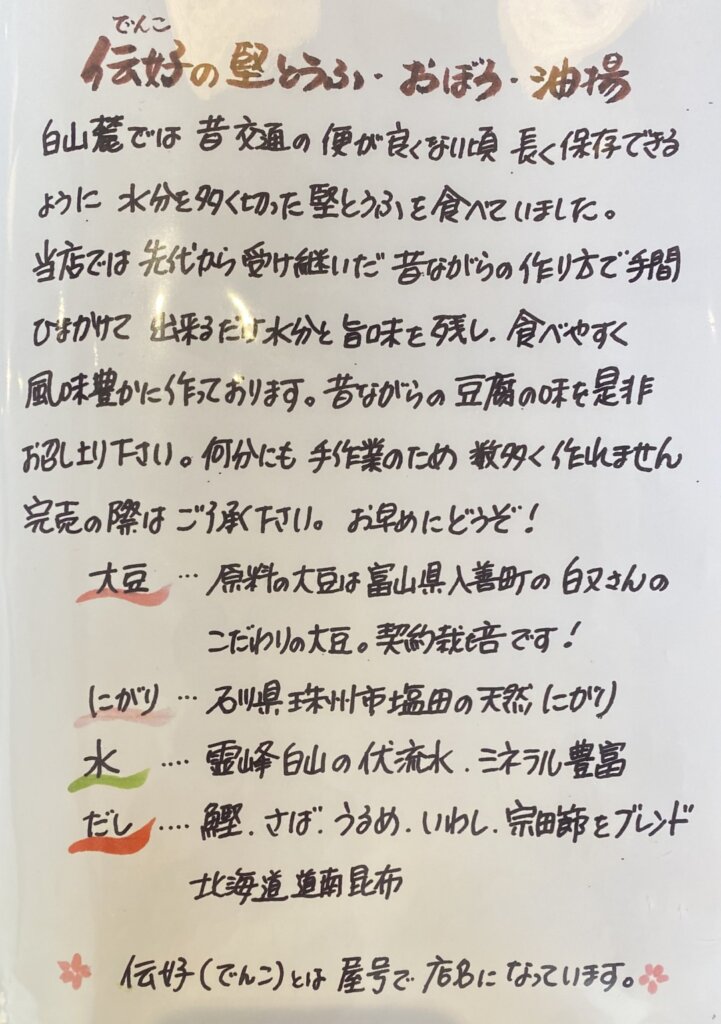 でんこ
伝好の堅とうふ・おぼろ・油揚
白山麓では 昔 交通の 便が良くない頃 長く保存できる
ように 水分を多く切った 堅とうふを食べていました。
当店では 先代から 受け継いだ 昔ながらの 作り方で 手間
ひまかけて 出来るだけ水分と旨味を残し、食べやすく
風味豊かに作っております。昔ながらの 豆腐の味を是非
お召し上り下さい。何分にも 手作業のため 数多く作れません
完売の際は ご了承下さい。 お早めにどうぞ！
大豆 … 原料の大豆は富山県入善町の 白又さんの
こだわりの大豆。契約栽培です！
にがり … 石川県珠州市塩田の天然にがり
水 …. 霊峰白山の伏流水．ミネラル豊富
だし …. 鰹．さば．うるめ．いわし．宗田節をブレンド
北海道道南昆布
伝好（でんこ）とは 屋号で 店名に なっています。